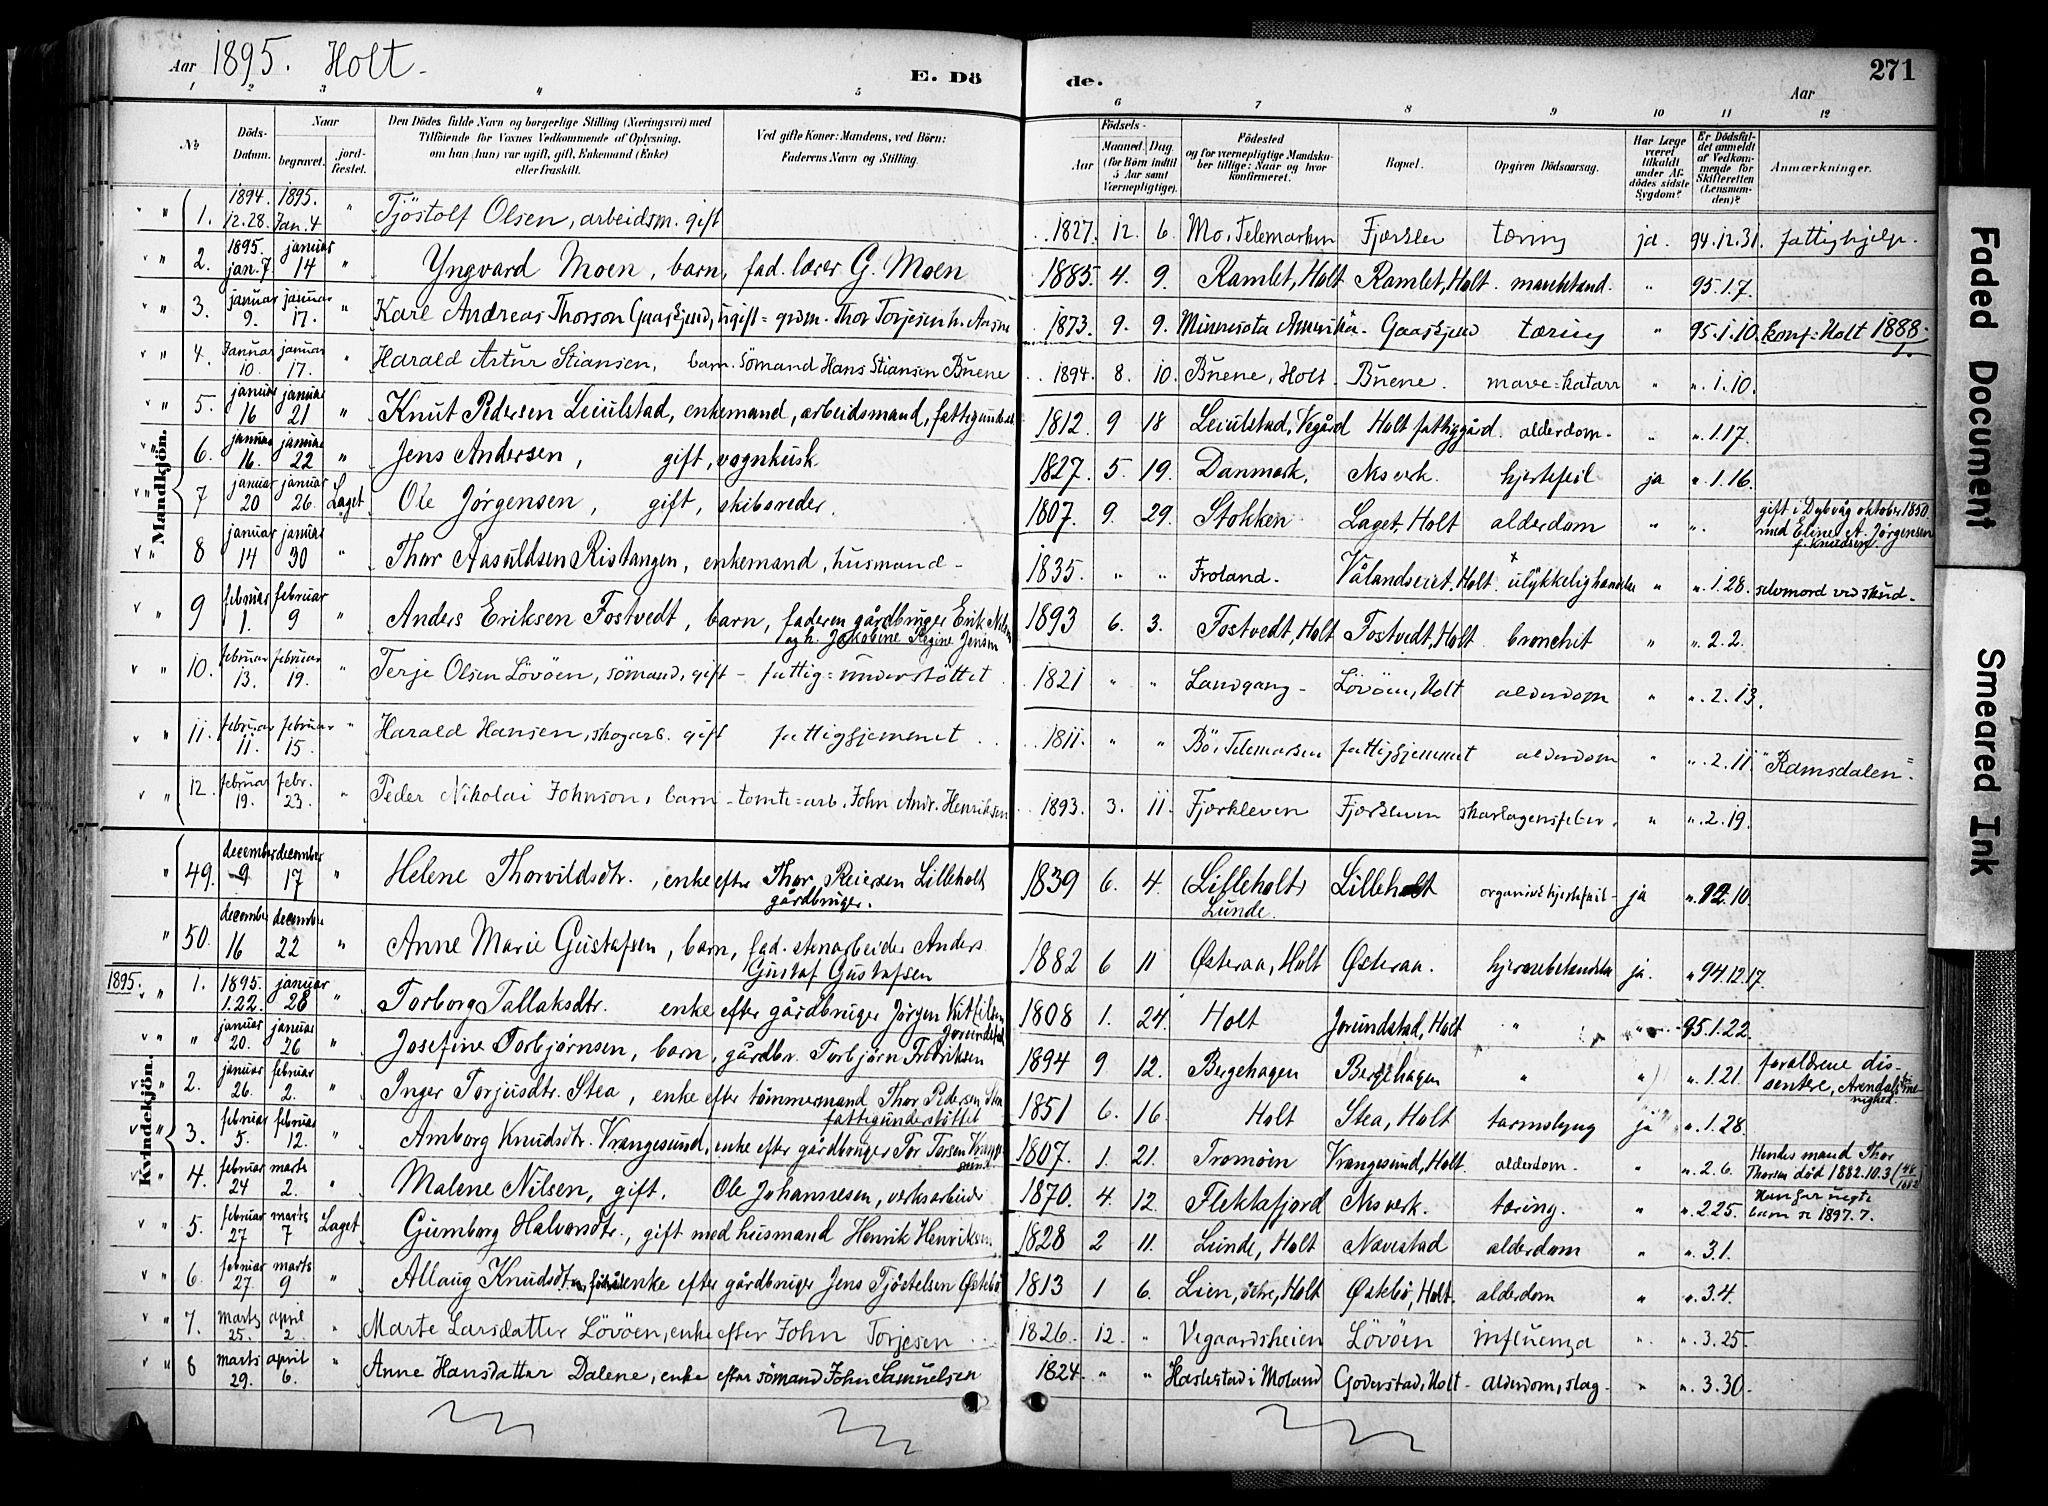 Aar 1895. Holt.
E. Döde.
271
Aar
1 2 3 4 5 6 7 8 9 10 11 12
№
Döds-Datum.
Naar
begravet.
jordfæstet.
Den Dödes fulde Navn og borgerlige Stilling (Næringsvei) med
Tilföiende for Voxnes Vedkommende af Oplysning,
om han (hun) var ugift, gift, Enkemand (Enke)
eller fraskilt.
Ved gifte Koner: Mandens, ved Börn:
Faderens Navn og Stilling.
Födsels-
Aar
Maaned. Dag.
(for Börn indtil
5 Aar samt
Værnepligtige).
Födested
og for værnepligtige Mandskaber tillige: Naar og hvor
konfirmeret.
Bopæl.
Opgiven Dödsaarsag.
Har Læge
været
tilkaldt
under Afdödes sidste
Sygdom?
Er Dödsfaldet anmeldt
af Vedkommende for
Skifteretten
(Lensmanden)?
Anmærkninger.
Mandkjön.
1. 1894. 12.28. 1895. Jan. 4 " Tjöstolf Olsen, arbeidsm. gift 1827. 12. 6. Mo, Telemarken tæring ja. 94.12.31. fattighjelp.
2. 1895. jan. 7 januar 14 " Yngvard Moen, barn, fad. lærer G. Moen 1885. 4. 9. Ramlet, Holt Ramlet, Holt. " 95.1.7.
3. januar 9. januar 17. " Karl Andreas Thorson Gaaskjend, ugift = grdm. Thor Torjesen 1873. 9. 9. Minnesota Amerika. tæring " 95.1.10. konf. Holt 1888.
4. Januar 10. januar 17. " Harald Artur Stiansen, barn. sömand Hans Stiansen Buene 1894. 8. 10. Buene, Holt. Buene. mave=katarr " ". 1.10.
5. januar 16 januar 21 " Knut Pedersen Leiulstad, enkemand, arbeidsmand, 1812. 9 18 Leiulstad, Vegård Holt fattiggård. alderdom. " ". 1.17.
6. januar 16. januar 22 " Jens Andersen, gift, vognkusk. 1827. 5. 19. Danmark. Nesverk. hjertefeil ja ". 1.16.
7 januar 20 januar 26. Laget Ole Jörgensen, gift, skibsreder. 1807. 9. 29. Stokken Laget, Holt alderdom " ". gift i Dybvåg oktober 1850
med Eline A. Jörgensen
f. Knudsen.
8 januar 14 januar 30 " Thor Aasuldsen Ristangen, enkemand, husmand - 1835. " " Froland. Holt. ulykkelig hændelse " ". 1.28. selvmord ved skud.
9 februar 1. februar 9 " Anders Eriksen Fostvedt, barn, faderen gårdbruger Erik Nilsen
og h. Jakobine Regine Jensen 1893 6. 3. Fostvedt, Holt Fostvedt, Holt. bronchit " ". 2.2.
10. februar 13. februar 19. " Terje Olsen Lövöen, sömand, gift - fattig=understöttet 1821 " " Landgang - Lövöen, Holt alderdom " ". 2.13.
11. februar 11. februar 15. " Harald Hansen, skogarb. gift fattighjemmet 1811. " " Bö, Telemarken fattighjemmet alderdom " ". 2.11. "Ramsdalen"
12. februar 19. febr. 23. " Peder Nikolai Johnson, barn - tomte=arb. John Andr. Henriksen 1893. 3. 11. Fjærkleven Fjærkleven skarlagensfeber. " ". 2.19.
Kvindekjön.
49. december 9 december 17 " Helene Thorvildsdtr., enke efter Thor Reiersen Lilleholt
gårdbruger. 1839 6. 4. (Lilleholt)
Lunde. Lilleholt organisk hjertefeil - ja ". 12.10.
50. december 16 december 22 " Anne Marie Gustafsen, barn, fad. stenarbeider Anders
Gustaf Gustafsen 1882 6 11 Østeraa, Holt Østeraa. hjernebetændelse ja. " 94.12.17.
1895. 1. 1895. 1.22. januar 28 " Torborg Tallaksdtr. enke efter gårdbruger Jörgen Kittilsen
1808 1. 24. Holt Jorundstad, Holt " 95.1.22.
" januar 20. januar 26 " Josefine Torbjörnsen, barn, gårdbr. Torbjörn Fredriksen 1894 9 12. Bergehagen Bergehagen " " ". 1.21. forældrene dissentere, Arendals menighed.
2. januar 26. februar 2. " Inger Torjusdtr. Stea, enke efter tömmermand Thor Pedersen Stea
fattigunderstöttet 1851 6. 16 Holt Stea, Holt tarmslyng ja ". 1.28.
3. februar 5. februar 12. " Amborg Knudsdtr. Vrangesund, enke efter gårdbruger Tor Torsen Vrangesund 1807. 1. 21. Tromöen Vrangesund, Holt. alderdom. " ". 2.6. Hendes mand Thor
Thorsen död 1882.10.3
4. februar 24 marts 2. " Malene Nilsen, gift. Ole Johannesen, verksarbeider 1870. 4. 12. Flekkefjord Nesverk. tæring. " ". 2.25. Han gav uegte
barn se 1897.7.
5. februar 27 marts 7 Laget Gumborg Halvorsdtr., gift med husmand Henrik Henriksen 1828 2 11. Lunde, Holt Navestad alderdom " ". 3.1.
6. februar 27. marts 9 " Allaug Knudsdtr. enke efter gårdbruger Jens Tjöstelsen Østebö 1813 1 6. Lien, Holt Østebö, Holt. alderdom " ". 3.4.
7. marts 25. april 2. " Marte Larsdatter Lövöen, enke efter John Torjesen 1826. 12. " Vegaardsheien Lövöen influenza " ". 3.25.
8 marts 29. april 6. " Anne Hansdatter Dalene, enke efter sömand John Samuelsen 1824. " " i Moland Goderstad, Holt - alderdom, slag - " ". 3.30.
Faded Document
Smeared Ink